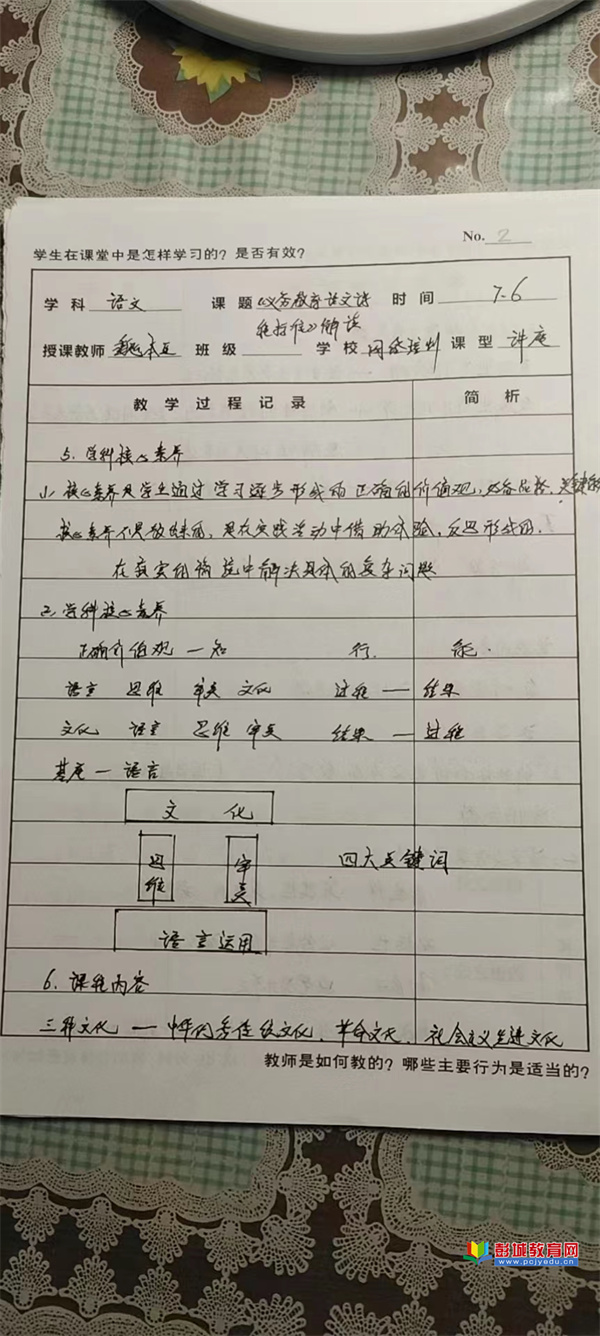 No. 2
学生在课堂中是怎样学习的？是否有效？
学科 语文 课题 《义务教育语文课程标准》解读 时间 7-6
授课教师 魏本亚 班级 学校 网络培训 课型 讲座
教学过程记录 简析
5. 学科核心素养
1, 核心素养是学生通过学习逐步形成的正确的价值观，必备品格，关键能
核心素养不是教出来的，是在实践活动中借助体验、反思形成的.
在真实的情境中解决具体的复杂问题
2, 学科核心素养
正确价值观 — 知 行. 能.
语言 思维 审美 文化 过程 — 结果
文化 语言 思维 审美 结果 — 过程
基底 — 语言
文 化
思维 审美 四大关键词
语言运用
6. 课程内容
三种文化 — 中华优秀传统文化、革命文化、社会主义先进文化
教师是如何教的？哪些主要行为是适当的？
彭城教育网
www.pcjyedu.cn